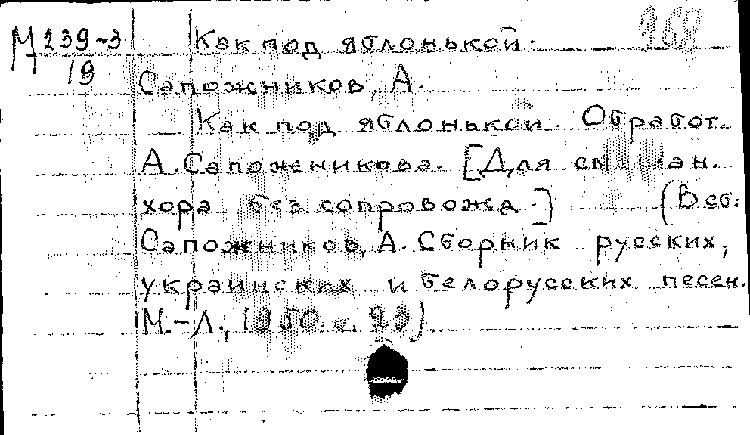 М 239-3 Как под яблонькой. 968
19
Сапожников, А.
Как под яблонькой. Обработ.
А. Сапожникова. [Для смешан.
хора без сопровожд.] (В сб:
Сапожников, А. Сборник русских,
украинских и белорусских песен.
М.-Л., 1950. с. 23).